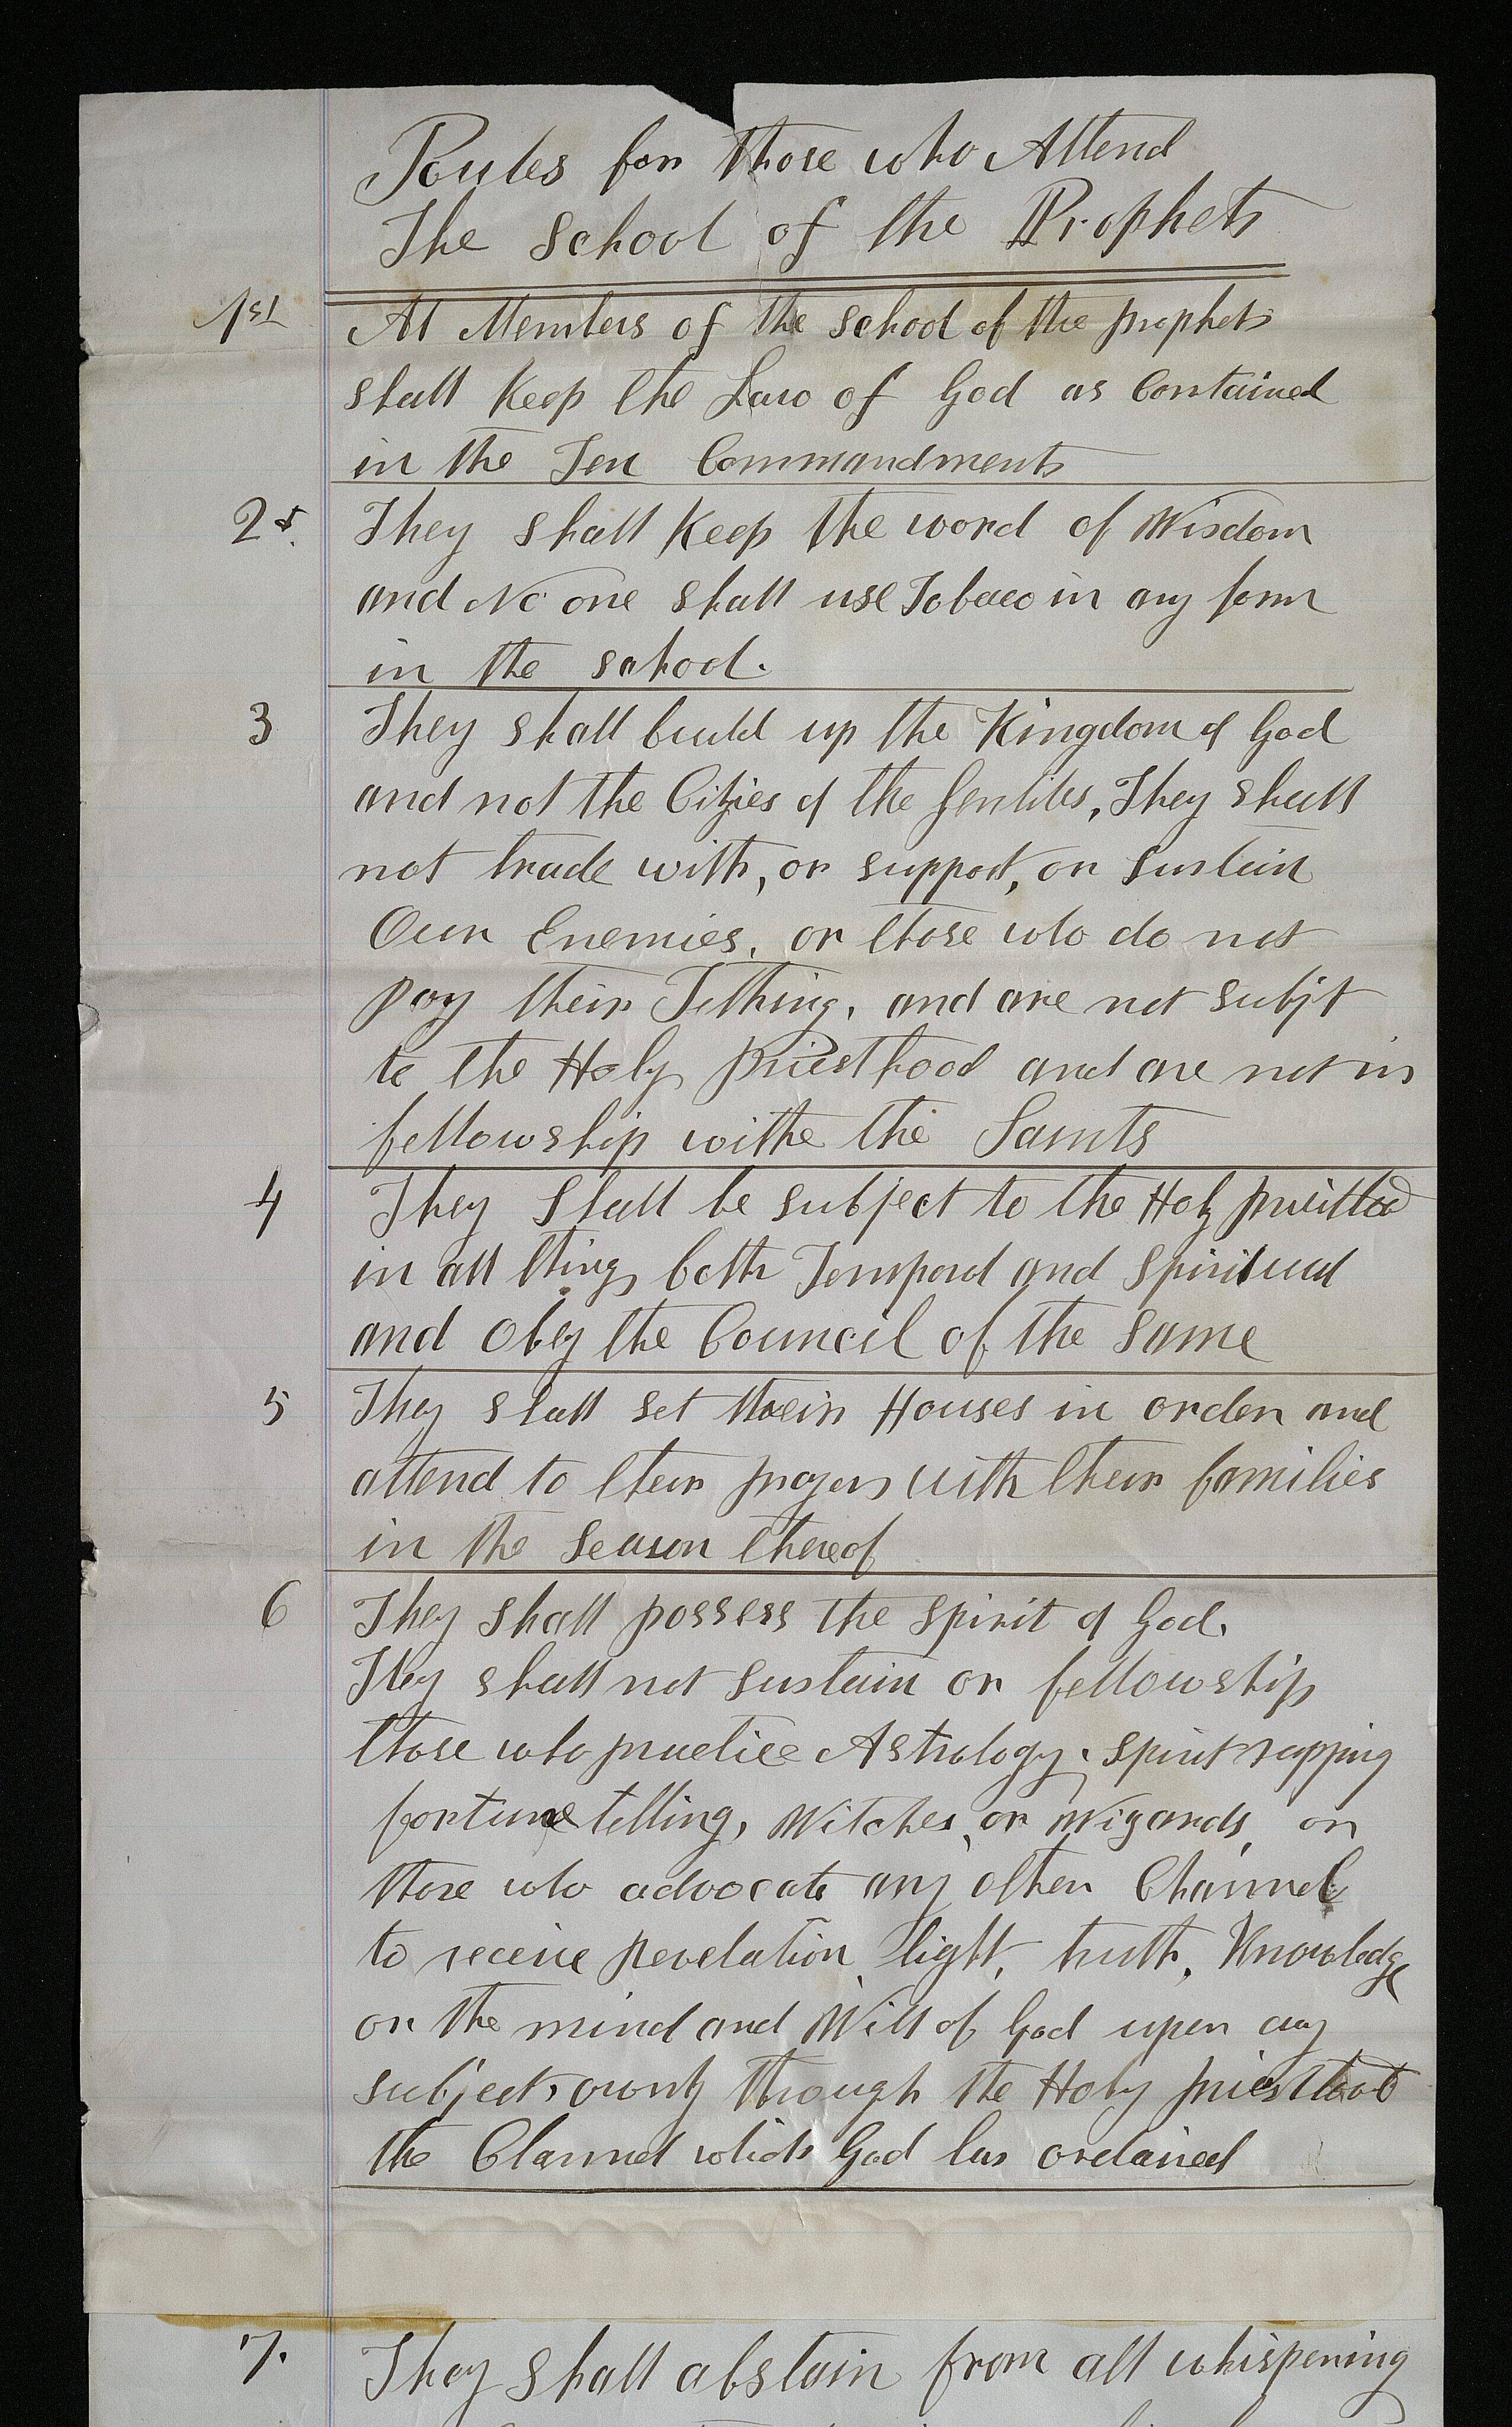 Rules for those who Attend
The School of the Prophets
1st All Members of the School of the prophets
shall Keep the Law of God as Contained
in the Ten Commandments
2d. They shall Keep the word of Wisdom
and No one shall use Tobaco in any form
in the school.
3 They shall build up the Kingdom of God
and not the Cities of the Gentiles, They shall
not trade with, or support, or sustain
Our Enemies, or those who do not
pay their Tithing, and are not subjt
to the Holy priesthood and are not in
fellowship withe the Saints
4 They shall be subject to the Holy priesthood
in all things both Temporal and Spiritual
and Obey the Council of the same
5 They shall set their Houses in order and
attend to their prayers with their families
in the season thereof
6 They shall possess the spirit of God.
They shall not sustain or fellowship
those who practice Astrology, spirit rapping
fortune telling, Witches, or Wizards, or
those who advocate any other Channel
to receive revelation, light, truth, Knowledge
or the mind and Will of God upon any
subject, through the Holy priesthood
the Channel which God has ordained
7. They shall abstain from all whispering